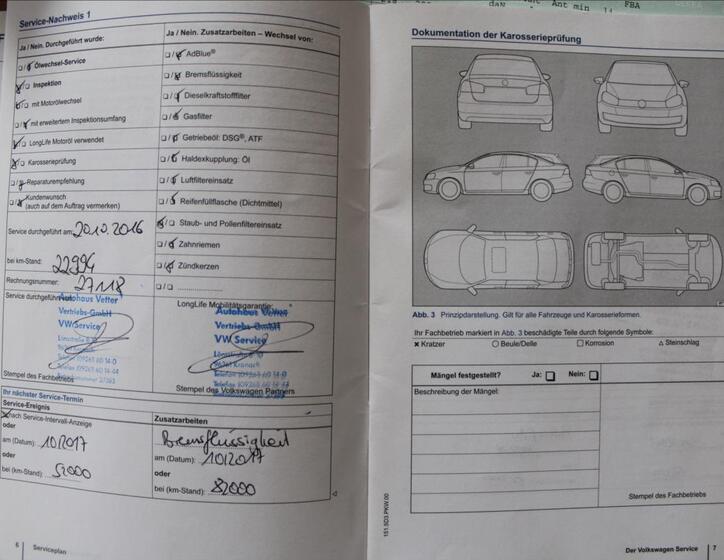 Service-Nachweis 1
Ja / Nein. Durchgeführt wurde:
Ölwechsel-Service
Inspektion
mit Motorölwechsel
mit erweitertem Inspektionsumfang
LongLife Motoröl verwendet
Karosserieprüfung
Reparaturempfehlung
Kundenwunsch
(auch auf dem Auftrag vermerken)
Service durchgeführt am: 20.10.2016
bei km-Stand: 22994
Rechnungsnummer: 27118
Service durchgeführt
Autohaus Vetter
Vertriebs-GmbH
VW Service
Stempel des Fachbetriebs
Ja / Nein. Zusatzarbeiten – Wechsel von:
AdBlue®
Bremsflüssigkeit
Dieselkraftstofffilter
Gasfilter
Getriebeöl: DSG®, ATF
Haldexkupplung: Öl
Luftfiltereinsatz
Reifenfüllflasche (Dichtmittel)
Staub- und Pollenfiltereinsatz
Zahnriemen
Zündkerzen
LongLife Mobilitätsgarantie:
Autohaus Vetter
Vertriebs-GmbH
VW Service
Stempel des Volkswagen Partners
Ihr nächster Service-Termin
Service-Ereignis
nach Service-Intervall-Anzeige
oder
am (Datum): 10/2017
oder
bei (km-Stand): 52000
Zusatzarbeiten
Bremsflüssigkeit
am (Datum): 10/2017
oder
bei (km-Stand): 82000
6 Serviceplan
Ant min
FBA
Dokumentation der Karosserieprüfung
Abb. 3 Prinzipdarstellung. Gilt für alle Fahrzeuge und Karosserieformen.
Ihr Fachbetrieb markiert in Abb. 3 beschädigte Teile durch folgende Symbole:
× Kratzer ○ Beule/Delle □ Korrosion △ Steinschlag
Mängel festgestellt? Ja: □ Nein: □
Beschreibung der Mängel:
Stempel des Fachbetriebs
151.5D3.PKW.00
Der Volkswagen Service 7